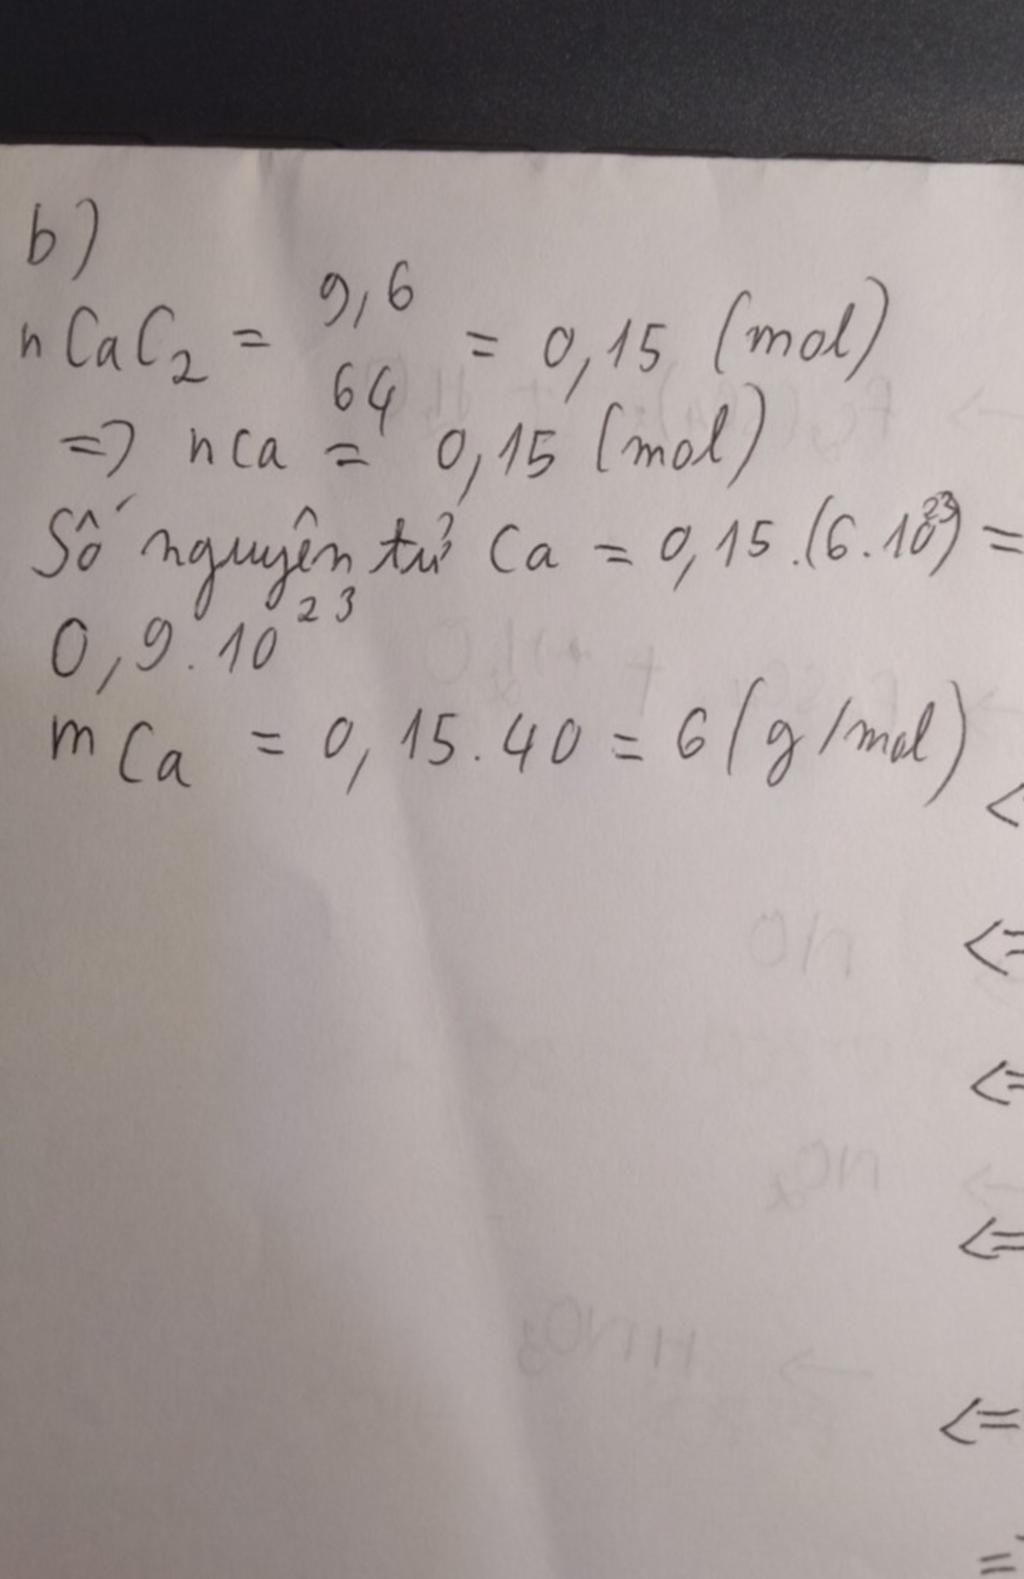 b)
nCaC₂ = 9,6 / 64 = 0,15 (mol)
=> nCa = 0,15 (mol)
Số nguyên tử Ca = 0,15.(6.10²³) =
0,9.10²³
mCa = 0,15.40 = 6 (g/mol)
<
<=
<=
<=
<=
=